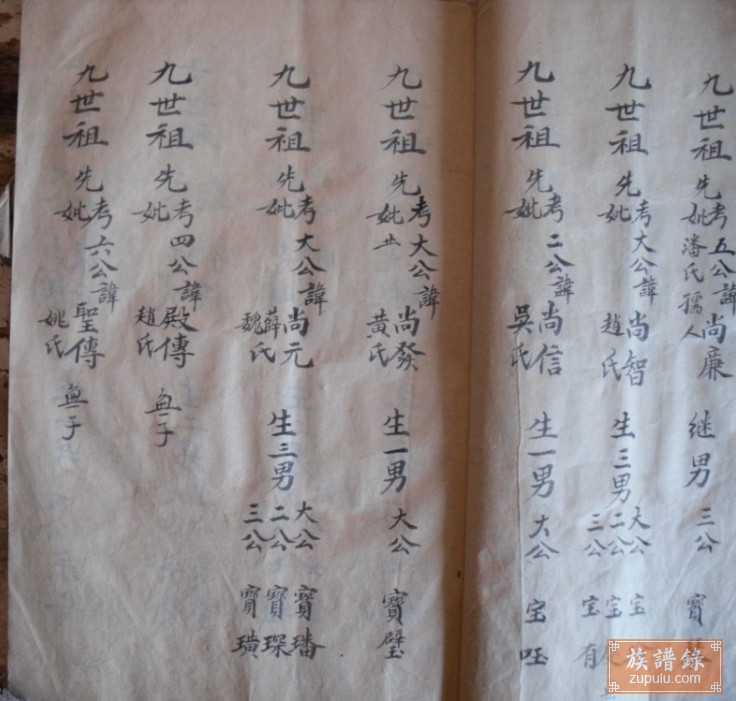 九世祖 先考五公諱尚廉
妣潘氏孺人 继男 三公 寳
九世祖 先考大公諱尚智
妣 趙氏 生三男 大公 宝
二公 宝
三公 宝有
九世祖 先考二公諱尚信
妣 吳氏 生一男 大公 宝
九世祖 先考大公諱尚發
妣 黃氏 生一男 大公 寳璧
九世祖 先考大公諱尚元
妣 薛氏 魏氏 生三男 大公 寳璠
二公 寳琛
三公 寳璜
九世祖 先考四公諱殿傳
妣 趙氏 無子
九世祖 先考六公諱聖傳
妣 姚氏 無子
族譜錄
zupulu.com